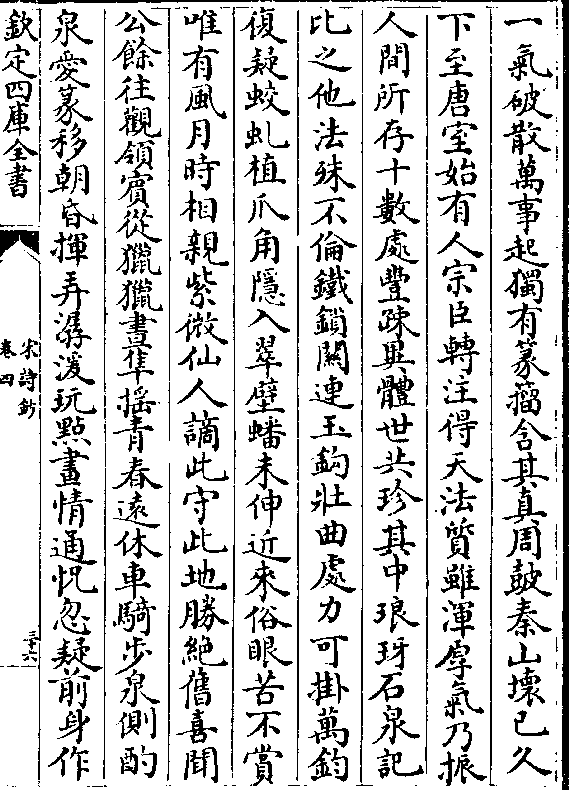 一氣破散萬事起獨有篆籀含其真周鼓秦山壞已久
下至唐室始有人宗臣轉注得天法質雖渾厚氣乃振
人間所存十數處豐疎異體世共珍其中琅琊石泉記
比之他法殊不倫鐵鎖關連玉鈎壯曲處力可掛萬鈞
復疑蛟虬植爪角隱入翠壁蟠未伸近來俗眼苦不賞
唯有風月時相親紫微仙人謫此守此地勝絶舊喜聞
公餘往觀領賓從獵獵畫隼揺青春逺休車騎步泉側酌
泉愛篆移朝昏揮弄潺湲玩點畫情通怳忽疑前身作
欽定四庫全書
宋詩鈔
卷四
三十六